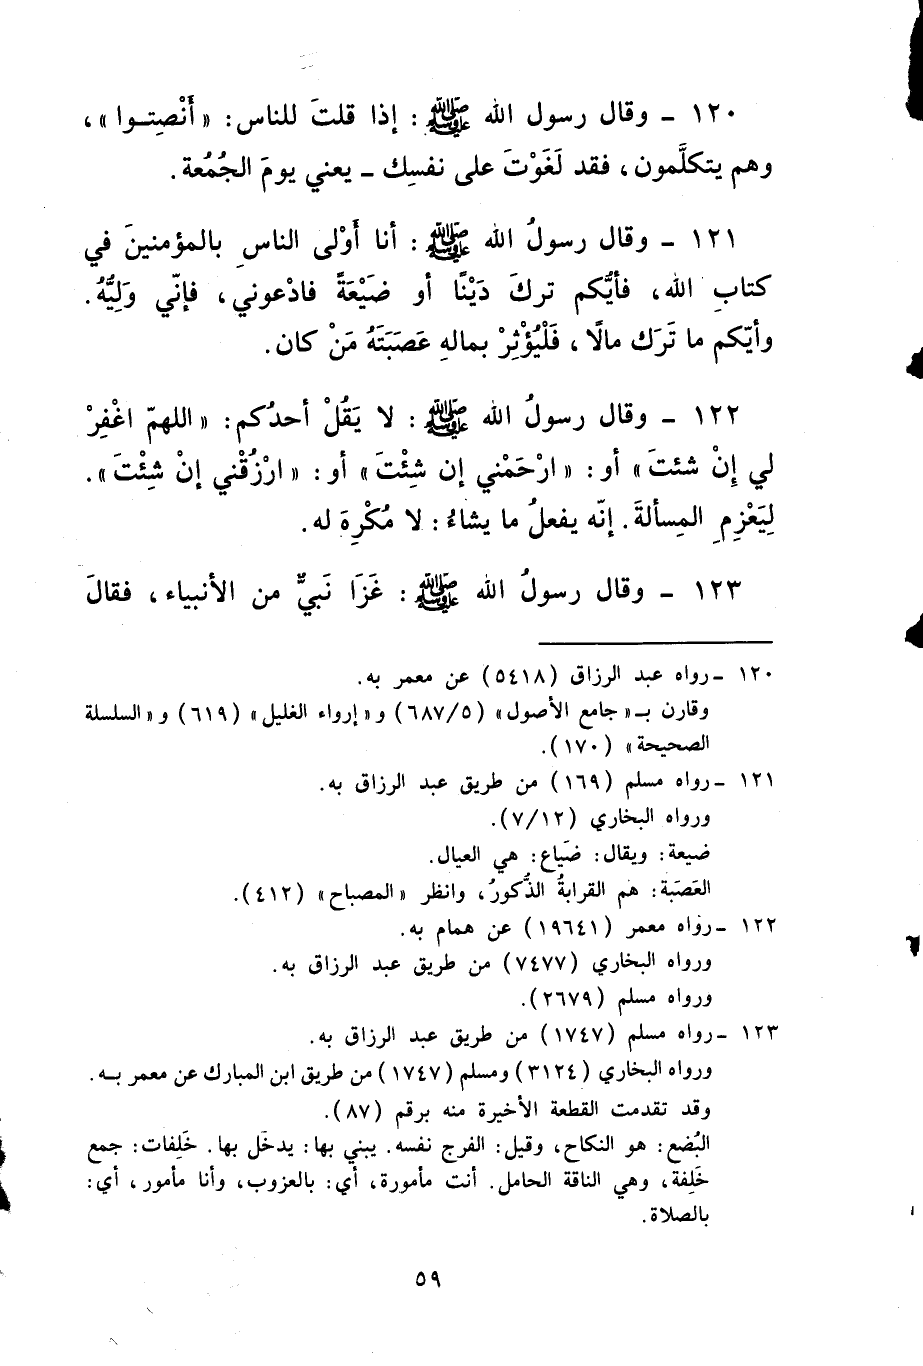 ١٢٠ ـ وقال رسول الله ﷺ : إذا قلتَ للناس: « أَنْصِتـوا »،
وهم يتكلَّمون، فقد لَغَوْتَ على نفسِك ـ يعني يومَ الجُمُعة.
١٢١ ـ وقال رسولُ الله ﷺ : أنا أَوْلى الناسِ بالمؤمنينَ في
كتابِ الله، فأيُّكم تركَ دَيْنًا أو ضَيْعَةً فادْعوني، فإنّي وَلِيُّهُ.
وأيّكم ما تَرَك مالًا، فَلْيُؤْثِرْ بمالهِ عَصَبَتَهُ مَنْ كان.
١٢٢ ـ وقال رسولُ الله ﷺ : لا يَقُلْ أحدُكم: « اللهمّ اغْفِرْ
لي إِنْ شئتَ » أو: « ارْحَمْني إن شِئْتَ » أو: « ارْزُقْني إنْ شِئْتَ ».
لِيَعْزِمِ المِسألةَ. إنّه يفعلُ ما يشاءُ: لا مُكْرِهَ له.
١٢٣ ـ وقال رسولُ الله ﷺ : غَزَا نَبيٌّ من الأنبياء، فقالَ
١٢٠ ـ رواه عبد الرزاق (٥٤١٨) عن معمر به.
وقارن بـ« جامع الأصول » (٦٨٧/٥) و« إرواء الغليل » (٦١٩) و« السلسلة
الصحيحة » (١٧٠).
١٢١ ـ رواه مسلم (١٦٩) من طريق عبد الرزاق به.
ورواه البخاري (٧/١٢).
ضيعة: ويقال: ضَيَاع: هي العيال.
العَصَبَة: هم القرابةُ الذُّكورُ، وانظر « المصباح » (٤١٢).
١٢٢ ـ رواه معمر (١٩٦٤١) عن همام به.
ورواه البخاري (٧٤٧٧) من طريق عبد الرزاق به.
ورواه مسلم (٢٦٧٩).
١٢٣ ـ رواه مسلم (١٧٤٧) من طريق عبد الرزاق به.
ورواه البخاري (٣١٢٤) ومسلم (١٧٤٧) من طريق ابن المبارك عن معمر بـه.
وقد تقدمت القطعة الأخيرة منه برقم (٨٧).
البُضع: هو النكاح، وقيل: الفرج نفسه. يبني بها: يدخل بها. خَلِفات: جمع
خَلِفة، وهي الناقة الحامل. أنت مأمورة، أي: بالعزوب، وأنا مأمور، أي:
بالصلاة.
٥٩